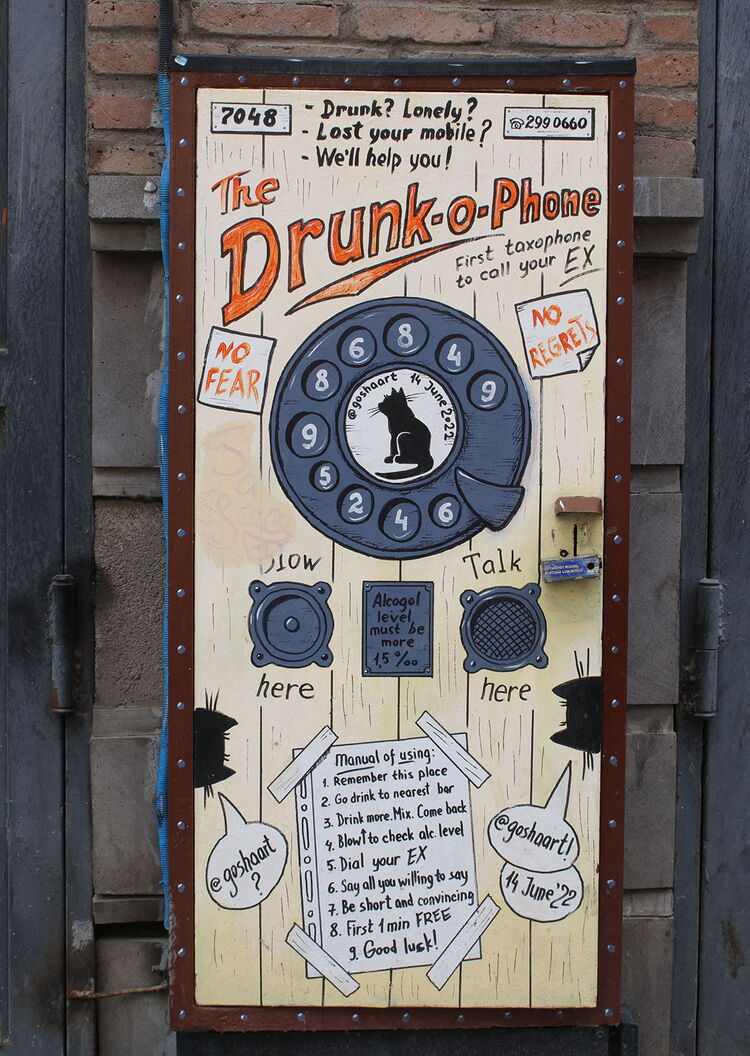 7048
- Drunk? Lonely?
- Lost your mobile?
- We'll help you!
☎299 0660
The
Drunk-o-Phone
First taxophone
to call your EX
NO
FEAR
NO
REGRETS
8
6
4
8
9
9
5
2
4
6
@goshaart 14 June 2022
Blow
here
Alcogol
level
must be
more
1,5 ‰
Talk
here
Manual of using:
1. Remember this place
2. Go drink to nearest bar
3. Drink more. Mix. Come back
4. Blow↑ to check alc. level
5. Dial your EX
6. Say all you willing to say
7. Be short and convincing
8. First 1 min FREE
9. Good luck!
@goshaart
?
@goshaart!
14 June'22